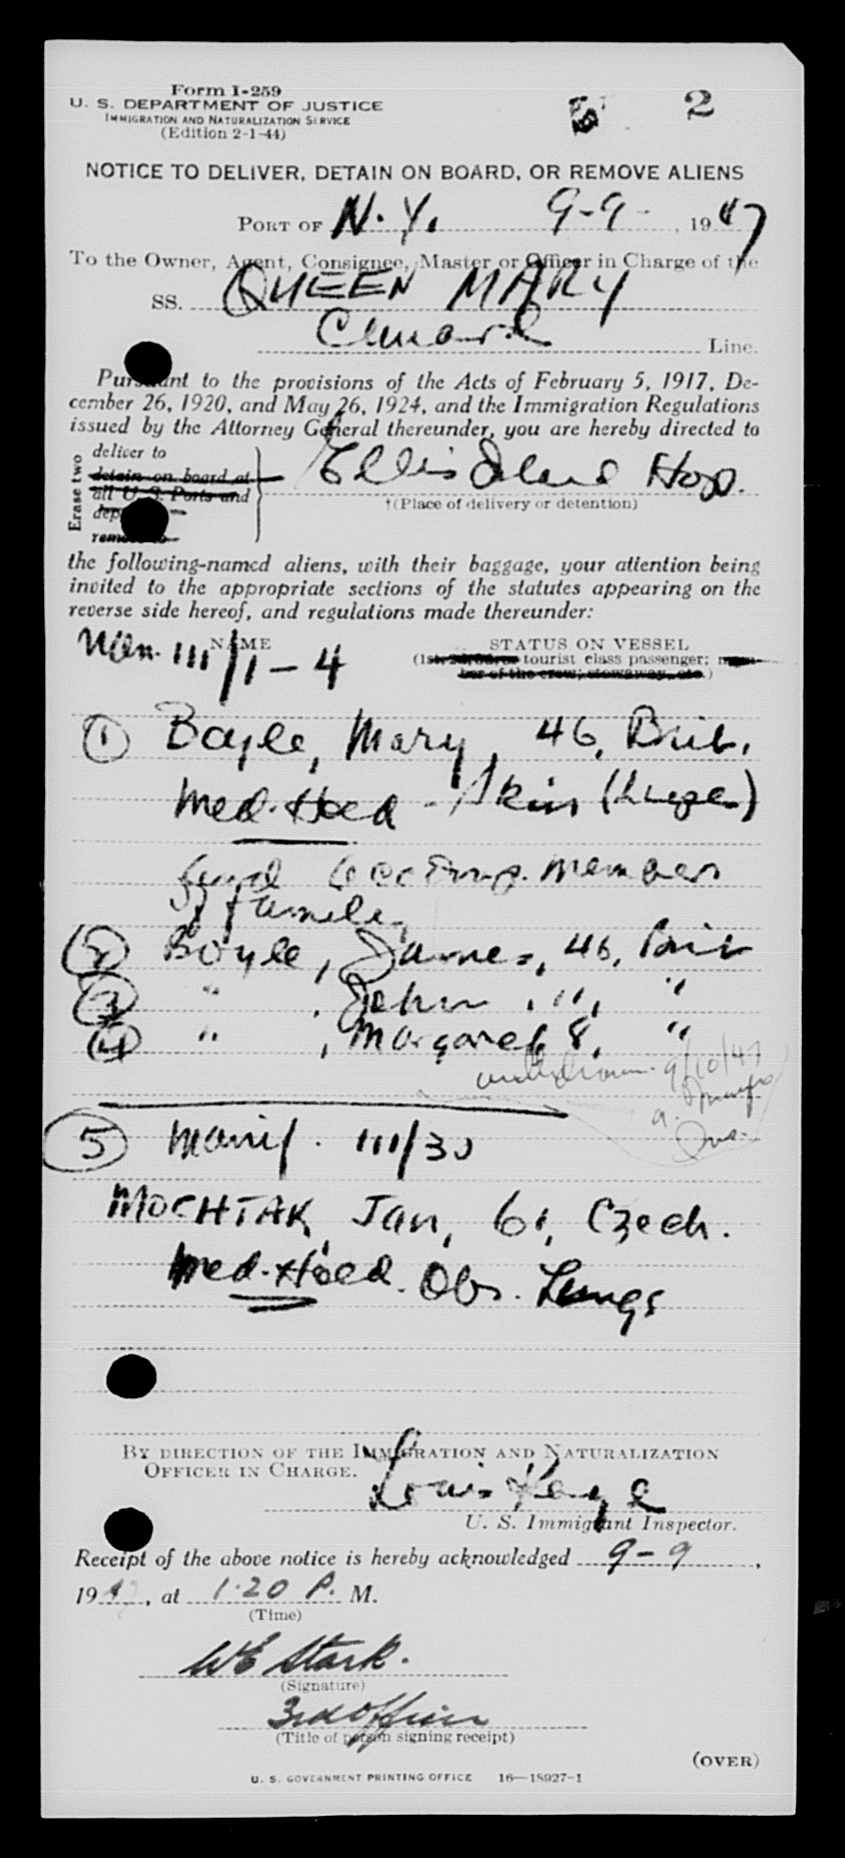 Form I-259
U. S. DEPARTMENT OF JUSTICE
IMMIGRATION AND NATURALIZATION SERVICE
(Edition 2-1-44)
2
NOTICE TO DELIVER, DETAIN ON BOARD, OR REMOVE ALIENS
PORT OF N.Y. 9-9-, 1947
To the Owner, Agent, Consignee, Master or Officer in Charge of the
SS. QUEEN MARY
Cunard Line.
Pursuant to the provisions of the Acts of February 5, 1917, De-
cember 26, 1920, and May 26, 1924, and the Immigration Regulations
issued by the Attorney General thereunder, you are hereby directed to
Erase two
deliver to
detain on board at
all U. S. Ports and
remove to
Ellis Island Hosp.
†(Place of delivery or detention)
the following-named aliens, with their baggage, your attention being
invited to the appropriate sections of the statutes appearing on the
reverse side hereof, and regulations made thereunder:
NAME STATUS ON VESSEL
Man. 111/1-4 (1st, tourist class passenger; mem-
ber of the crew; stowaway, etc.)
1 Boyle, Mary, 46, Brit.
Med. Hold - Skin
and accomp. members
of family
2 Boyle, James, 46, Brit
3 " , John, 11, "
4 " , Margaret, 8, "
withdrawn. 9/10/47
a.
Ins.
5 Manif. 111/30
MOCHTAK, Jan, 61, Czech.
Med. Hold. Obs. Lungs
BY DIRECTION OF THE IMMIGRATION AND NATURALIZATION
OFFICER IN CHARGE.
Louis
U. S. Immigrant Inspector.
Receipt of the above notice is hereby acknowledged 9-9,
1947, at 1.20 P. M.
(Time)
WE Stark.
(Signature)
3rd Officer
(Title of person signing receipt)
(OVER)
U. S. GOVERNMENT PRINTING OFFICE 16—18927-1